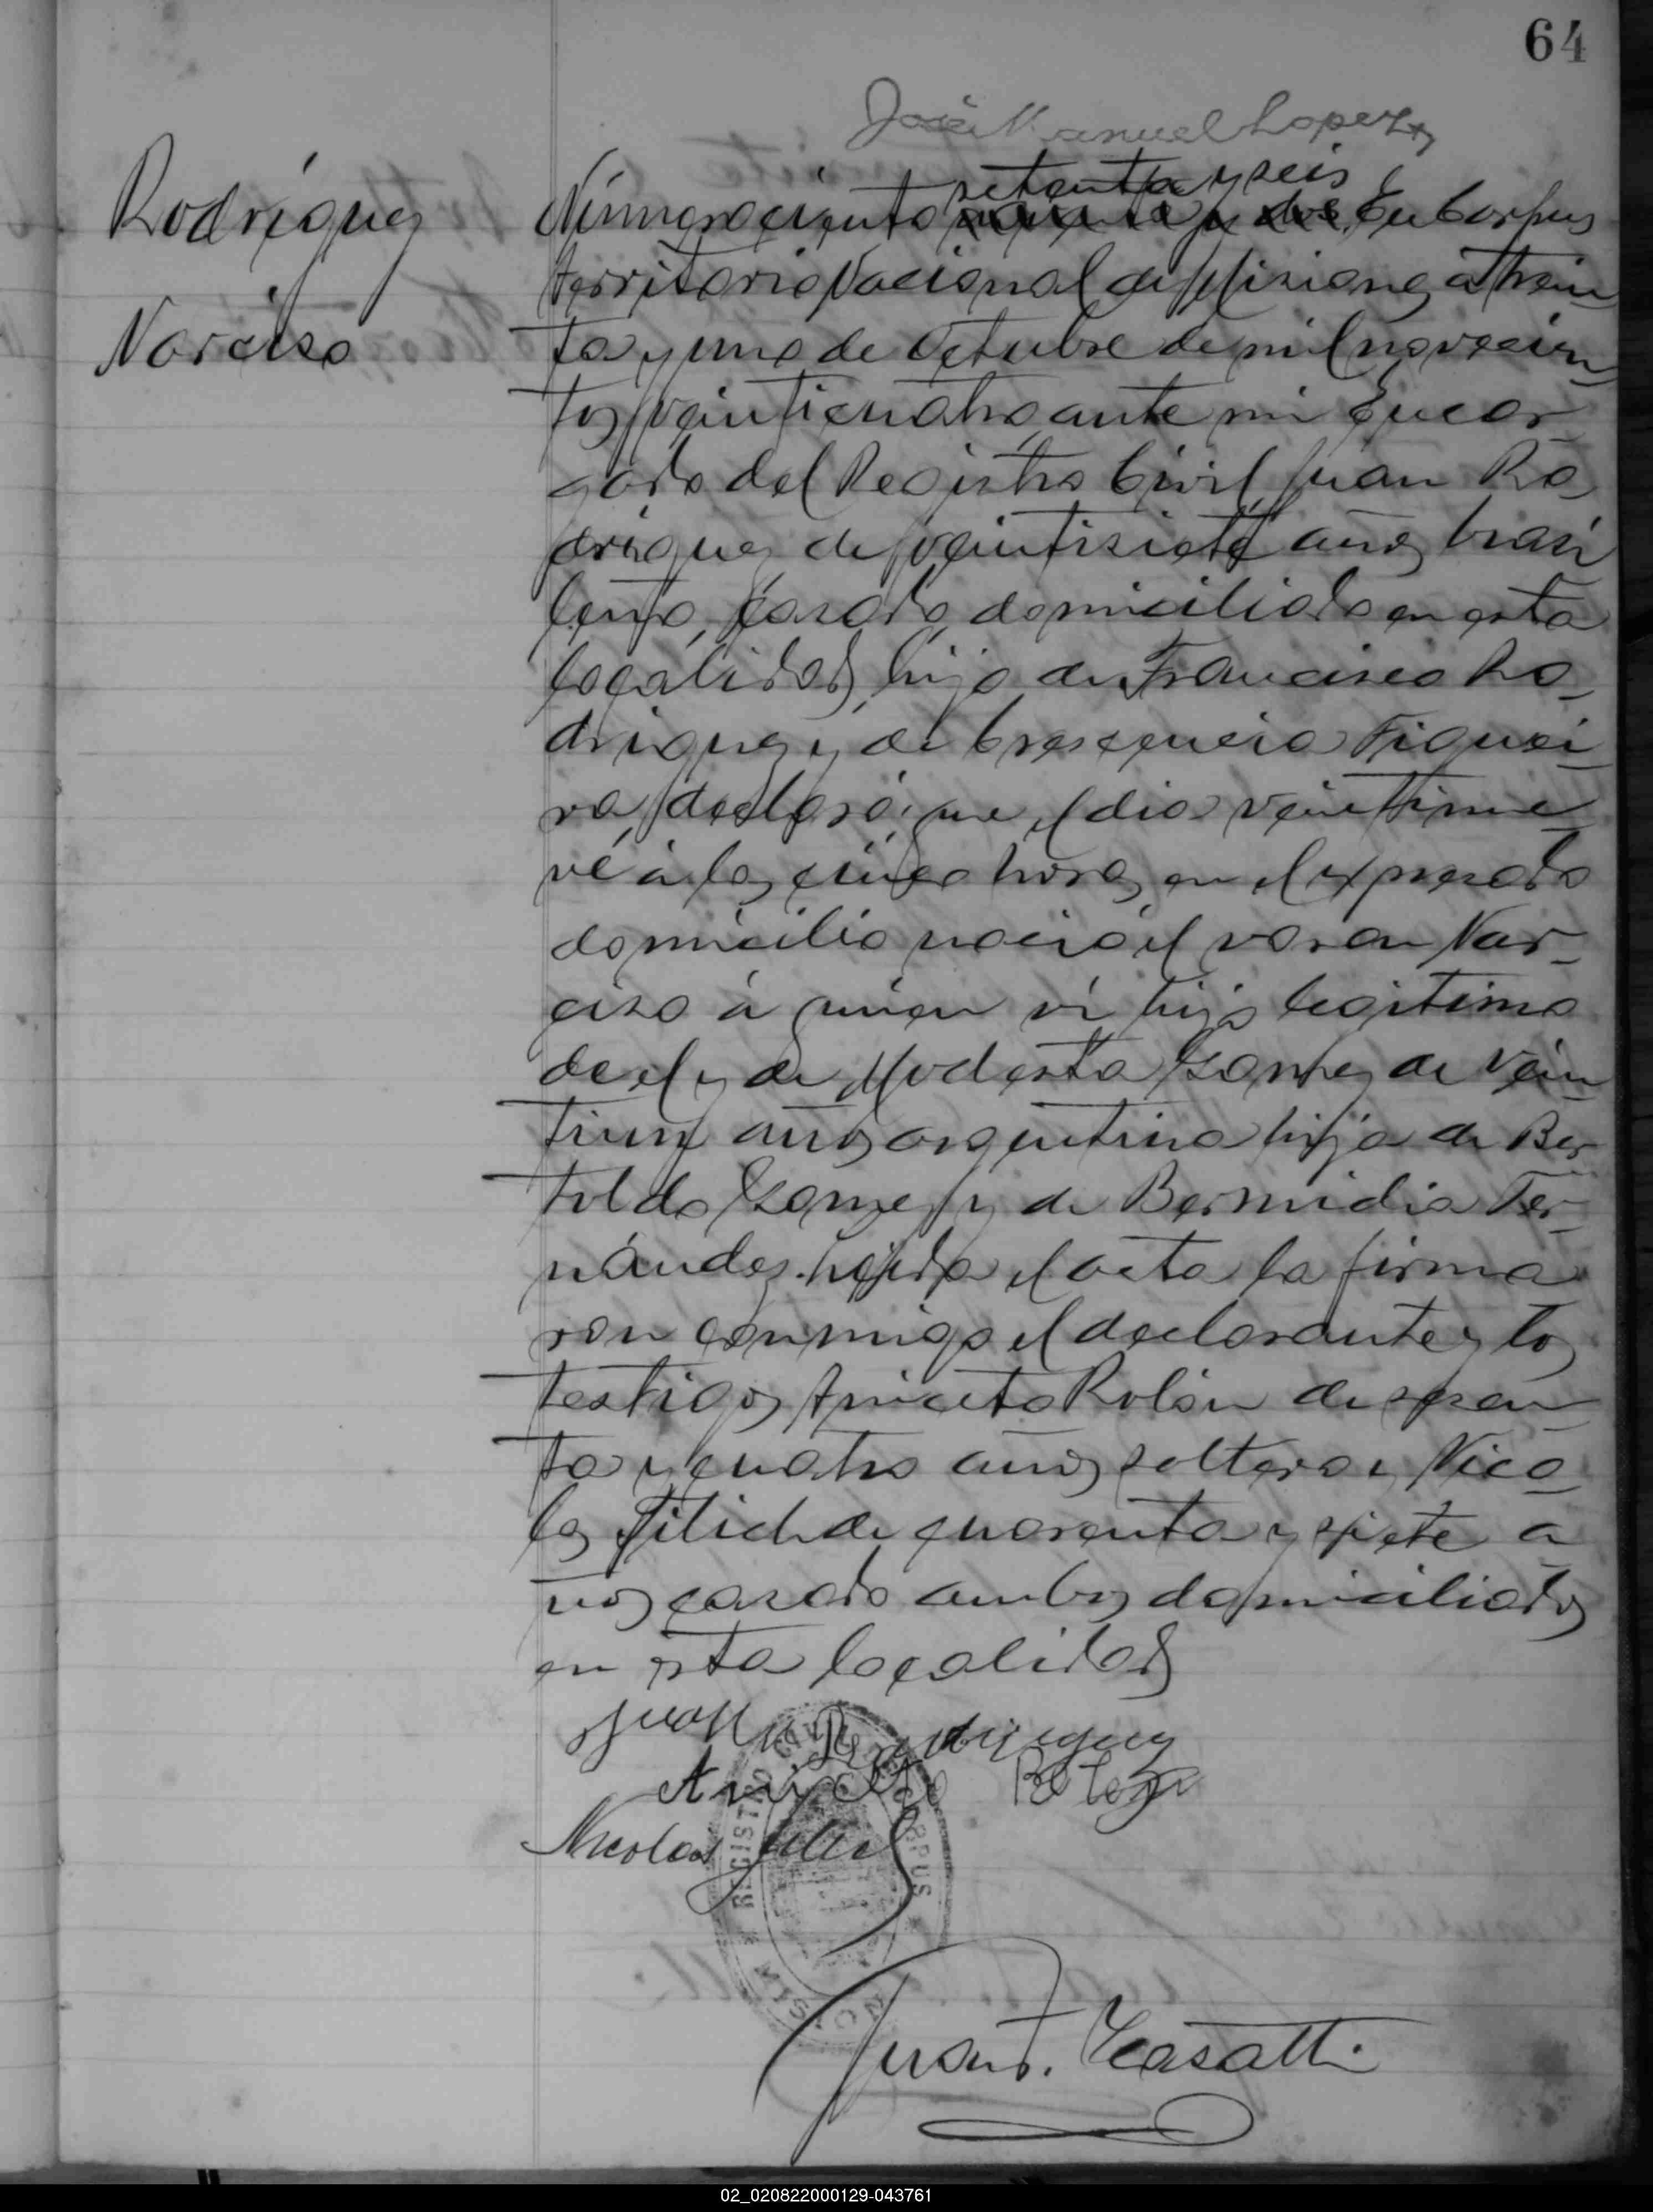 64
José Manuel Lopez
Rodríguez
Narciso
setenta y seis
Número ciento noventa y dos En Corpus
territorio Nacional de Misiones, á trein
ta y uno de Octubre de mil novecien
tos veinticuatro, ante mi Encar
gado del Registro Civil Juan Ro
driguez de veintisiete años, brasi
leño, casado, domiciliado en esta
localidad, hijo de Francisco Ro
driguez y de Cresencia Figuei
ra, declaró: que el dia veintinue
ve á las cinco horas en el expresado
domicilio nació el varon Nar
ciso á quien vi hijo legitimo
de el y de Modesta Gomez de vein
tiun años argentina hija de Ber
toldo Gomez y de Bermidia Fer
nández. Leida el acta la firma
ron conmigo el declarante y los
testigos Aniceto Rolón de sesen
ta y cuatro años, soltero y Nico
las Filich de cuarenta y siete a
ños, casado ambos domiciliados
en esta localidad
Juan Rodriguez
Aniceto Rolon
Nicolas
REGISTRO CIVIL CORPUS
MISIONES
Juan F. Casatti
02_020822000129-043761